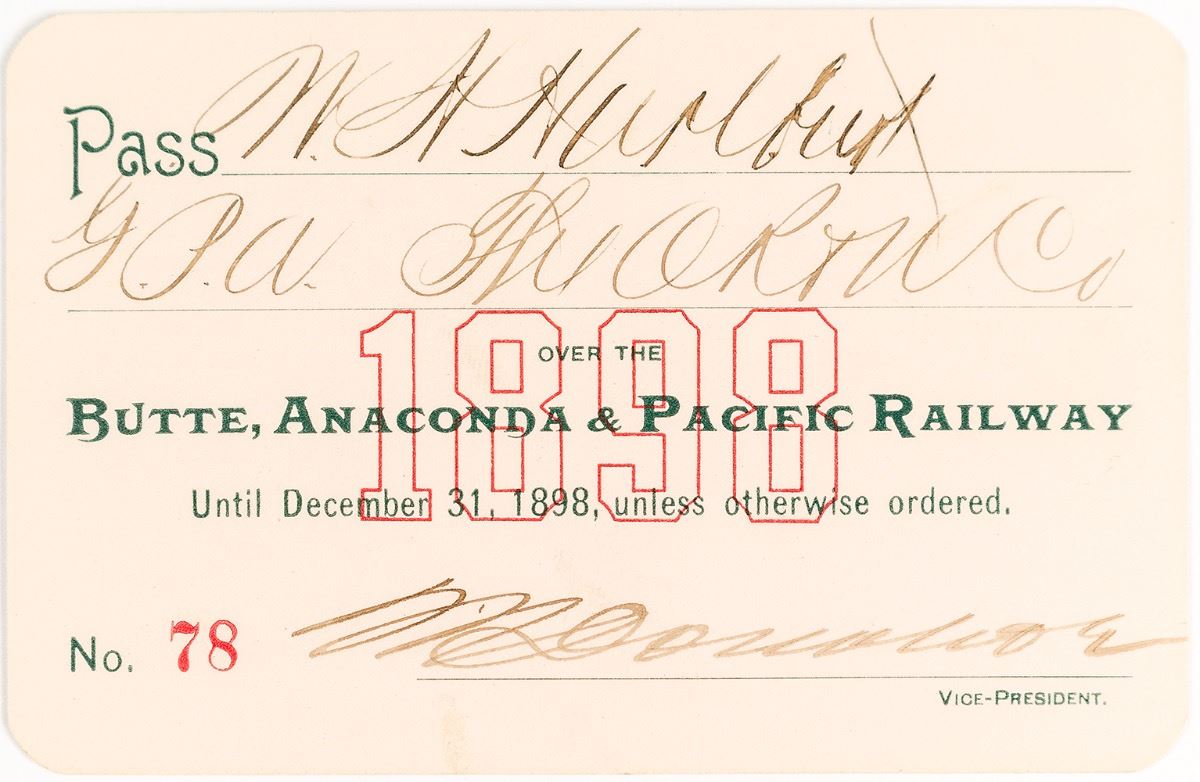 Pass W. H. Hurlburt
G. P. A. The O R & N Co
1898
OVER THE
BUTTE, ANACONDA & PACIFIC RAILWAY
Until December 31, 1898, unless otherwise ordered.
No. 78
VICE-PRESIDENT.